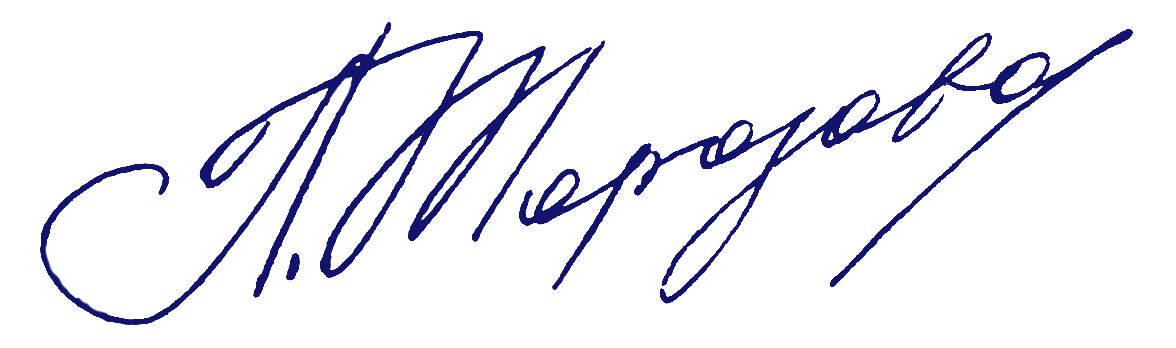 П. Морозова